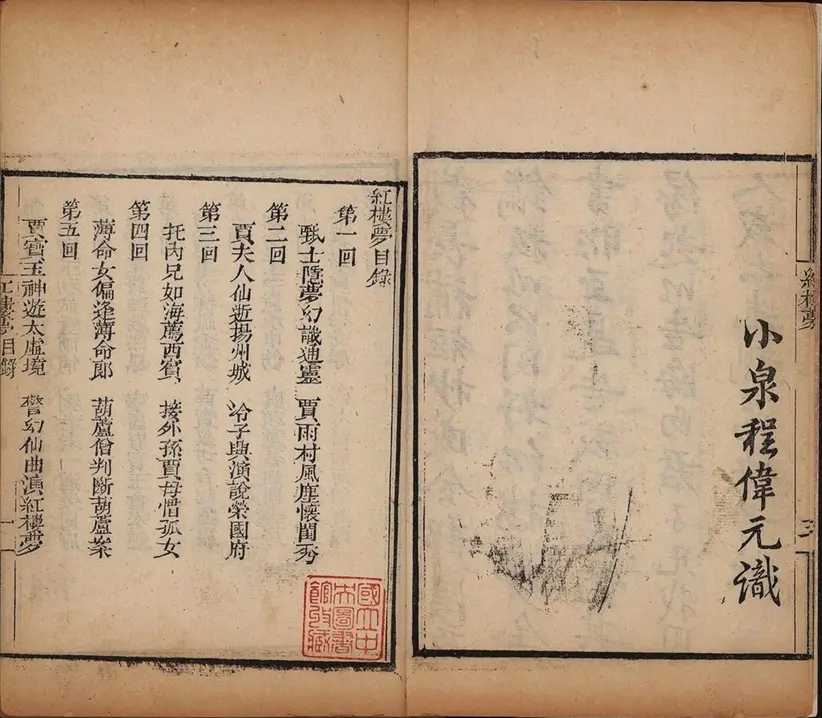 紅樓夢
小泉程偉元識
紅樓夢目錄
第一回
甄士隱夢幻識通靈 賈雨村風塵懷閨秀
第二回
賈夫人仙逝揚州城 冷子興演說榮國府
第三回
托內兄如海薦西賓 接外孫賈母惜孤女
第四回
薄命女偏逢薄命郎 葫蘆僧判斷葫蘆案
第五回
賈寶玉神遊太虛境 警幻仙曲演紅樓夢
紅樓夢目錄 一
國立中
央圖書
館收藏